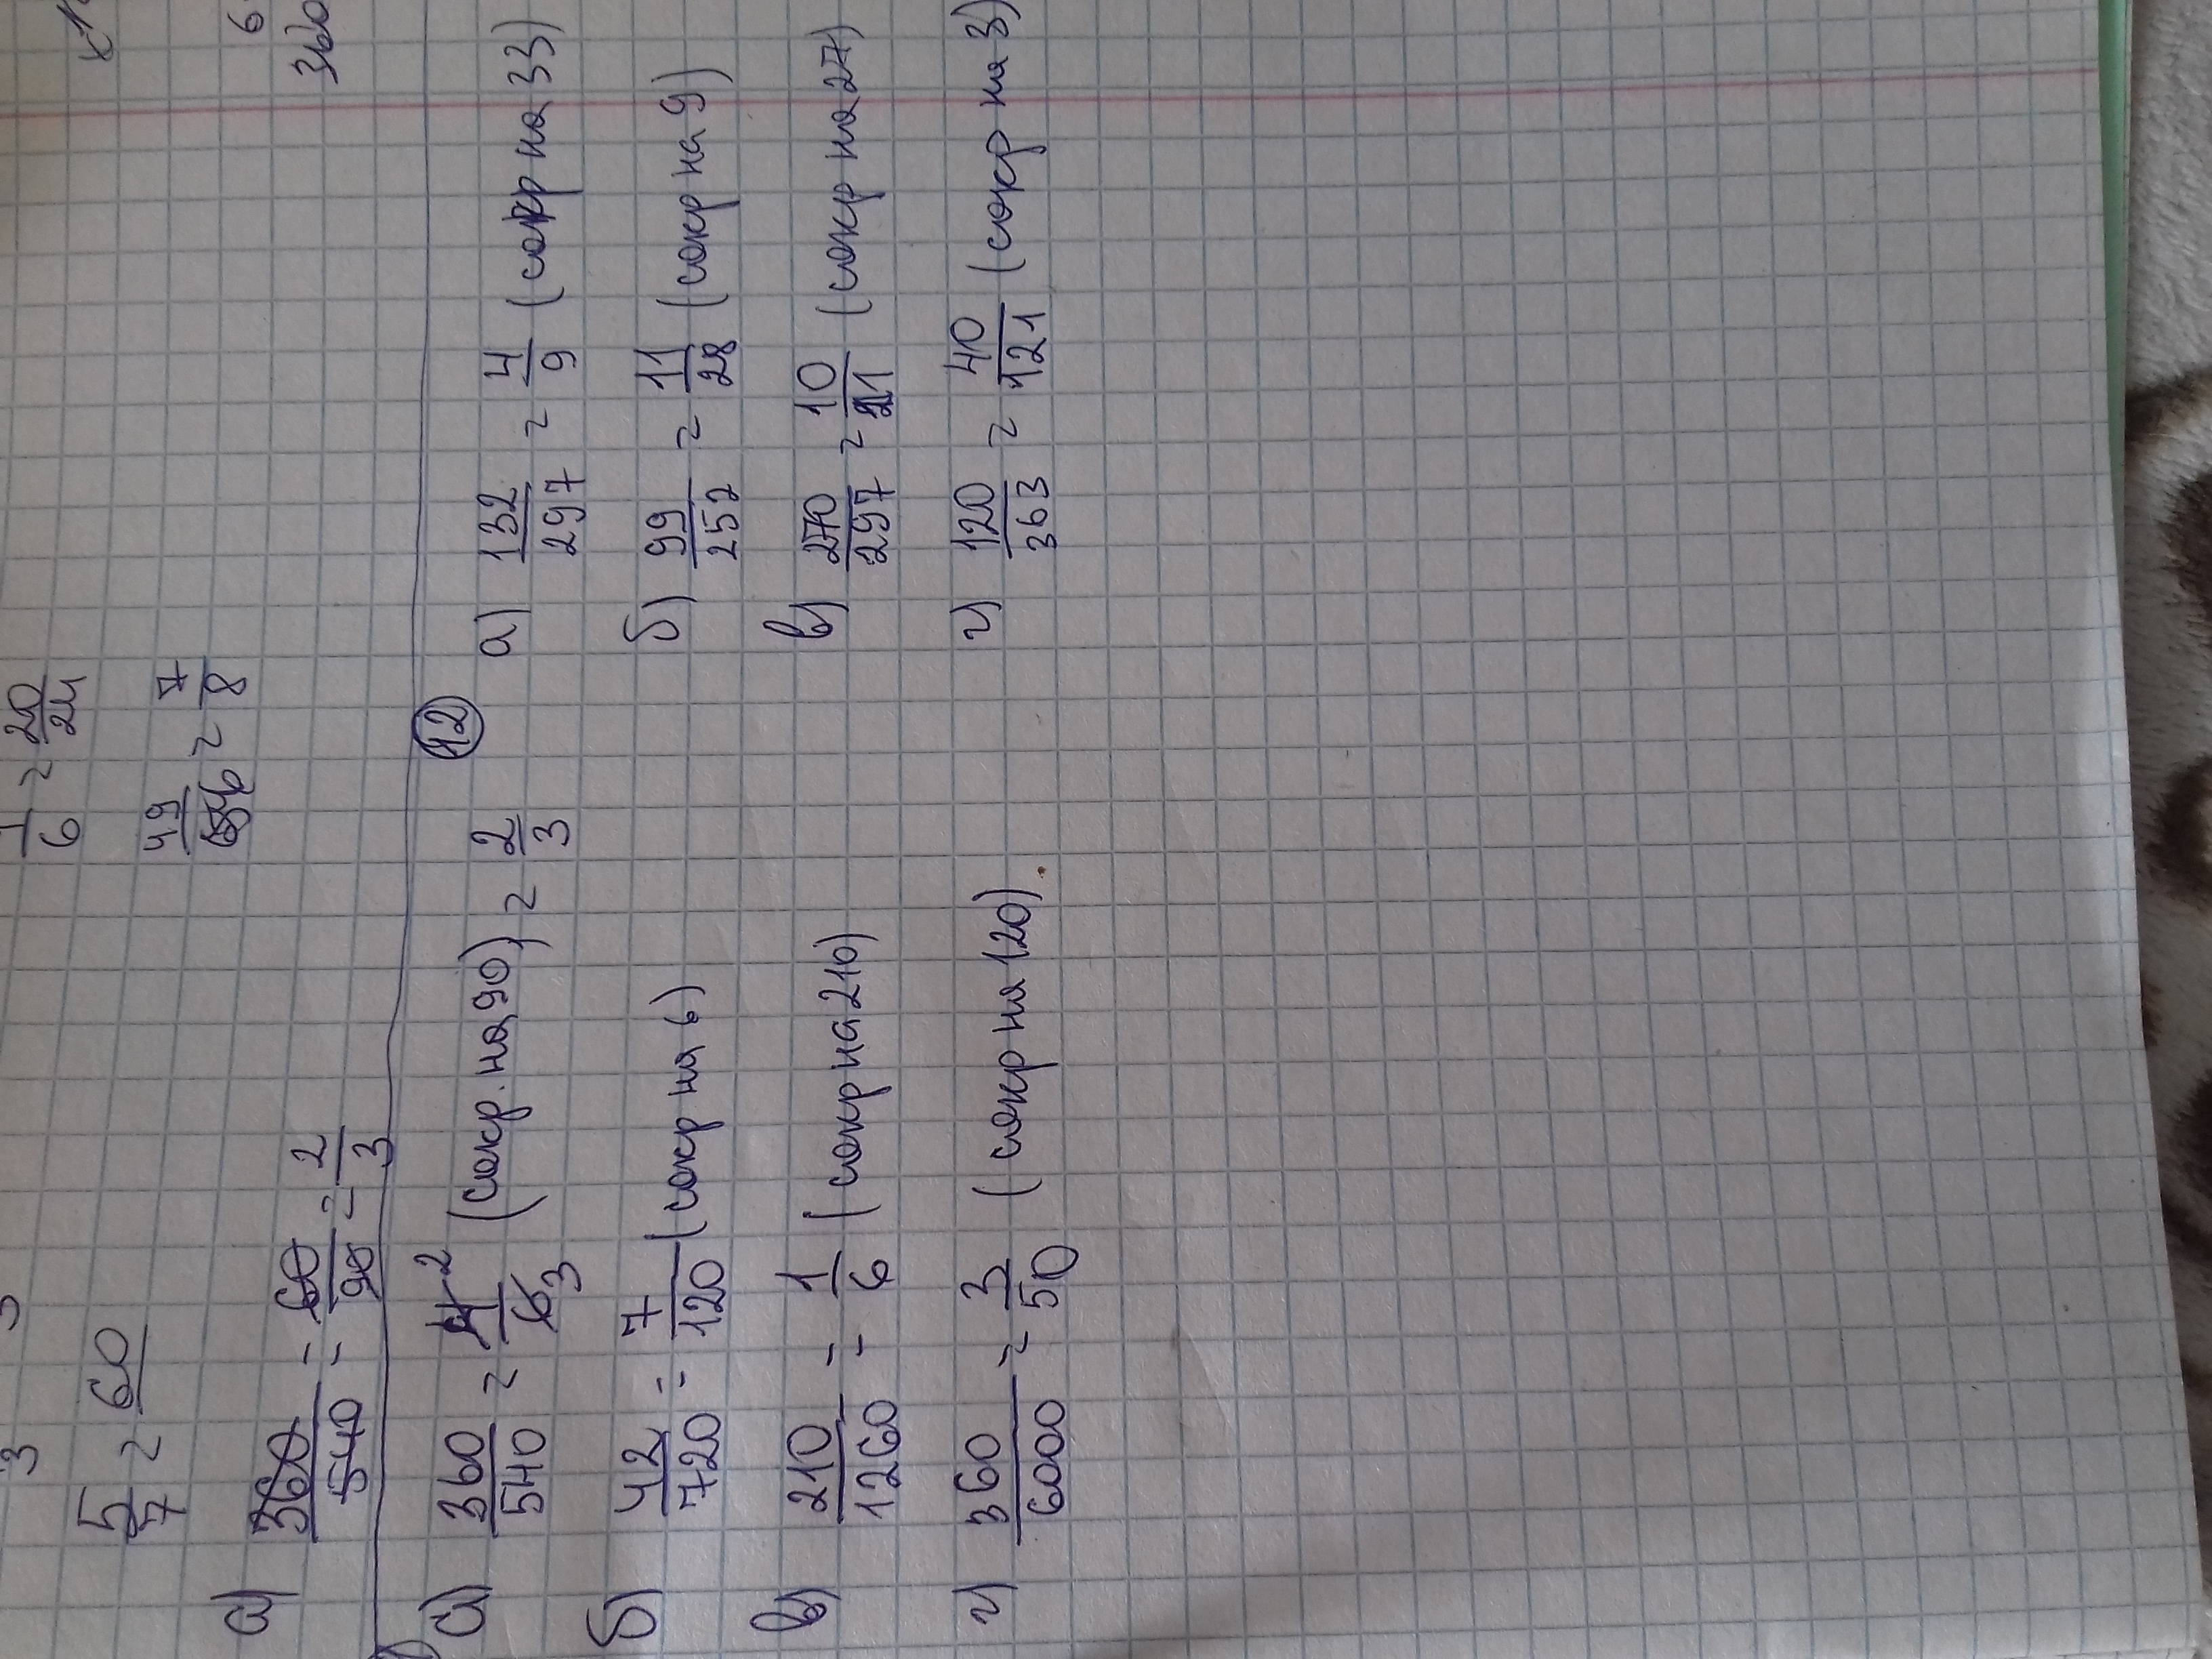 6
360
1/6 = 20/24
5/7 = 60
49/56 = 7/8
а) 360/540 = 60/90 = 2/3
а) 360/540 = 4/6 2/3 (сокр. на 90) = 2/3
б) 42/720 = 7/120 (сокр на 6)
в) 210/1260 = 1/6 (сокр на 210)
г) 360/6000 = 3/50 (сокр на 120)
12
а) 132/297 = 4/9 (сокр на 33)
б) 99/252 = 11/28 (сокр на 9)
в) 270/297 = 10/11 (сокр на 27)
г) 120/363 = 40/121 (сокр на 3)